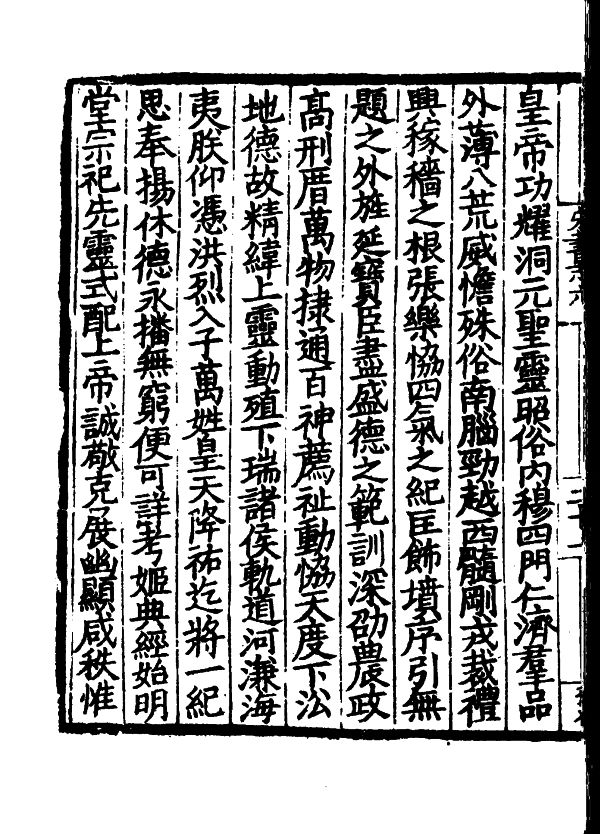 皇帝功耀洞元聖靈昭俗内穆四門仁濟羣品
外薄八荒威憺殊俗南腦勁越西髓剛戎裁禮
興稼穡之根張樂協四氣之紀匡飾墳序引無
題之外旌延寳臣盡盛德之範訓深劭農政
髙刑厝萬物棣通百神薦祉動協天度下沿
地德故精緯上靈動殖下瑞諸侯軌道河溓海
夷朕仰憑洪烈入子萬姓皇天降祐迄將一紀
思奉揚休德永播無窮便可詳考姬典經始明
堂宗祀先靈式配上帝誠敬克展幽顯咸秩惟